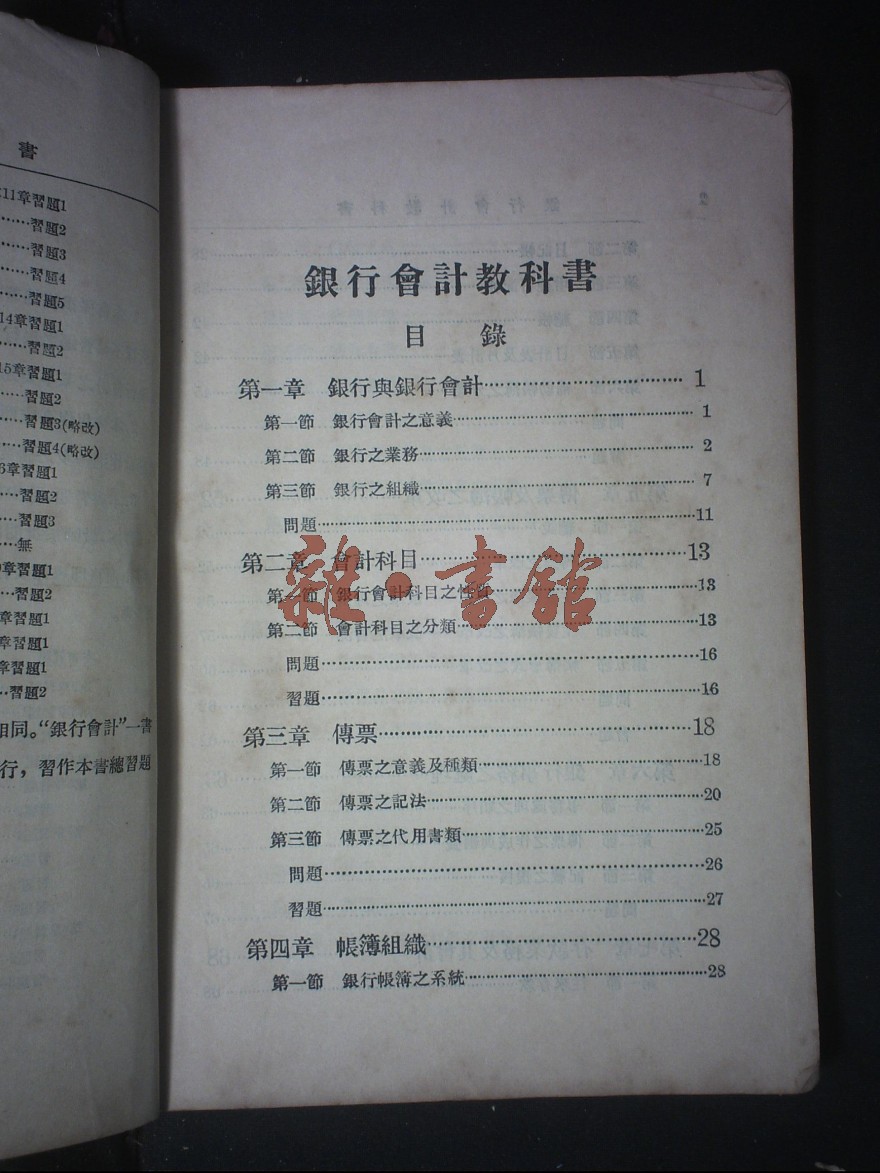 書
11章習題1
……習題2
……習題3
……習題4
……習題5
14章習題1
……習題2
15章習題1
……習題2
……習題3(略改)
……習題4(略改)
6章習題1
……習題2
……習題3
……無
章習題1
……習題2
章習題1
章習題1
章習題1
……習題2
相同。“銀行會計”一書
行，習作本書總習題
銀行會計教科書
目 錄
第一章 銀行與銀行會計……1
第一節 銀行會計之意義……1
第二節 銀行之業務……2
第三節 銀行之組織……7
問題……11
第二章 會計科目……13
第一節 銀行會計科目之性質……13
第二節 會計科目之分類……13
問題……16
習題……16
第三章 傳票……18
第一節 傳票之意義及種類……18
第二節 傳票之記法……20
第三節 傳票之代用書類……25
問題……26
習題……27
第四章 帳簿組織……28
第一節 銀行帳簿之系統……28
雜·書館